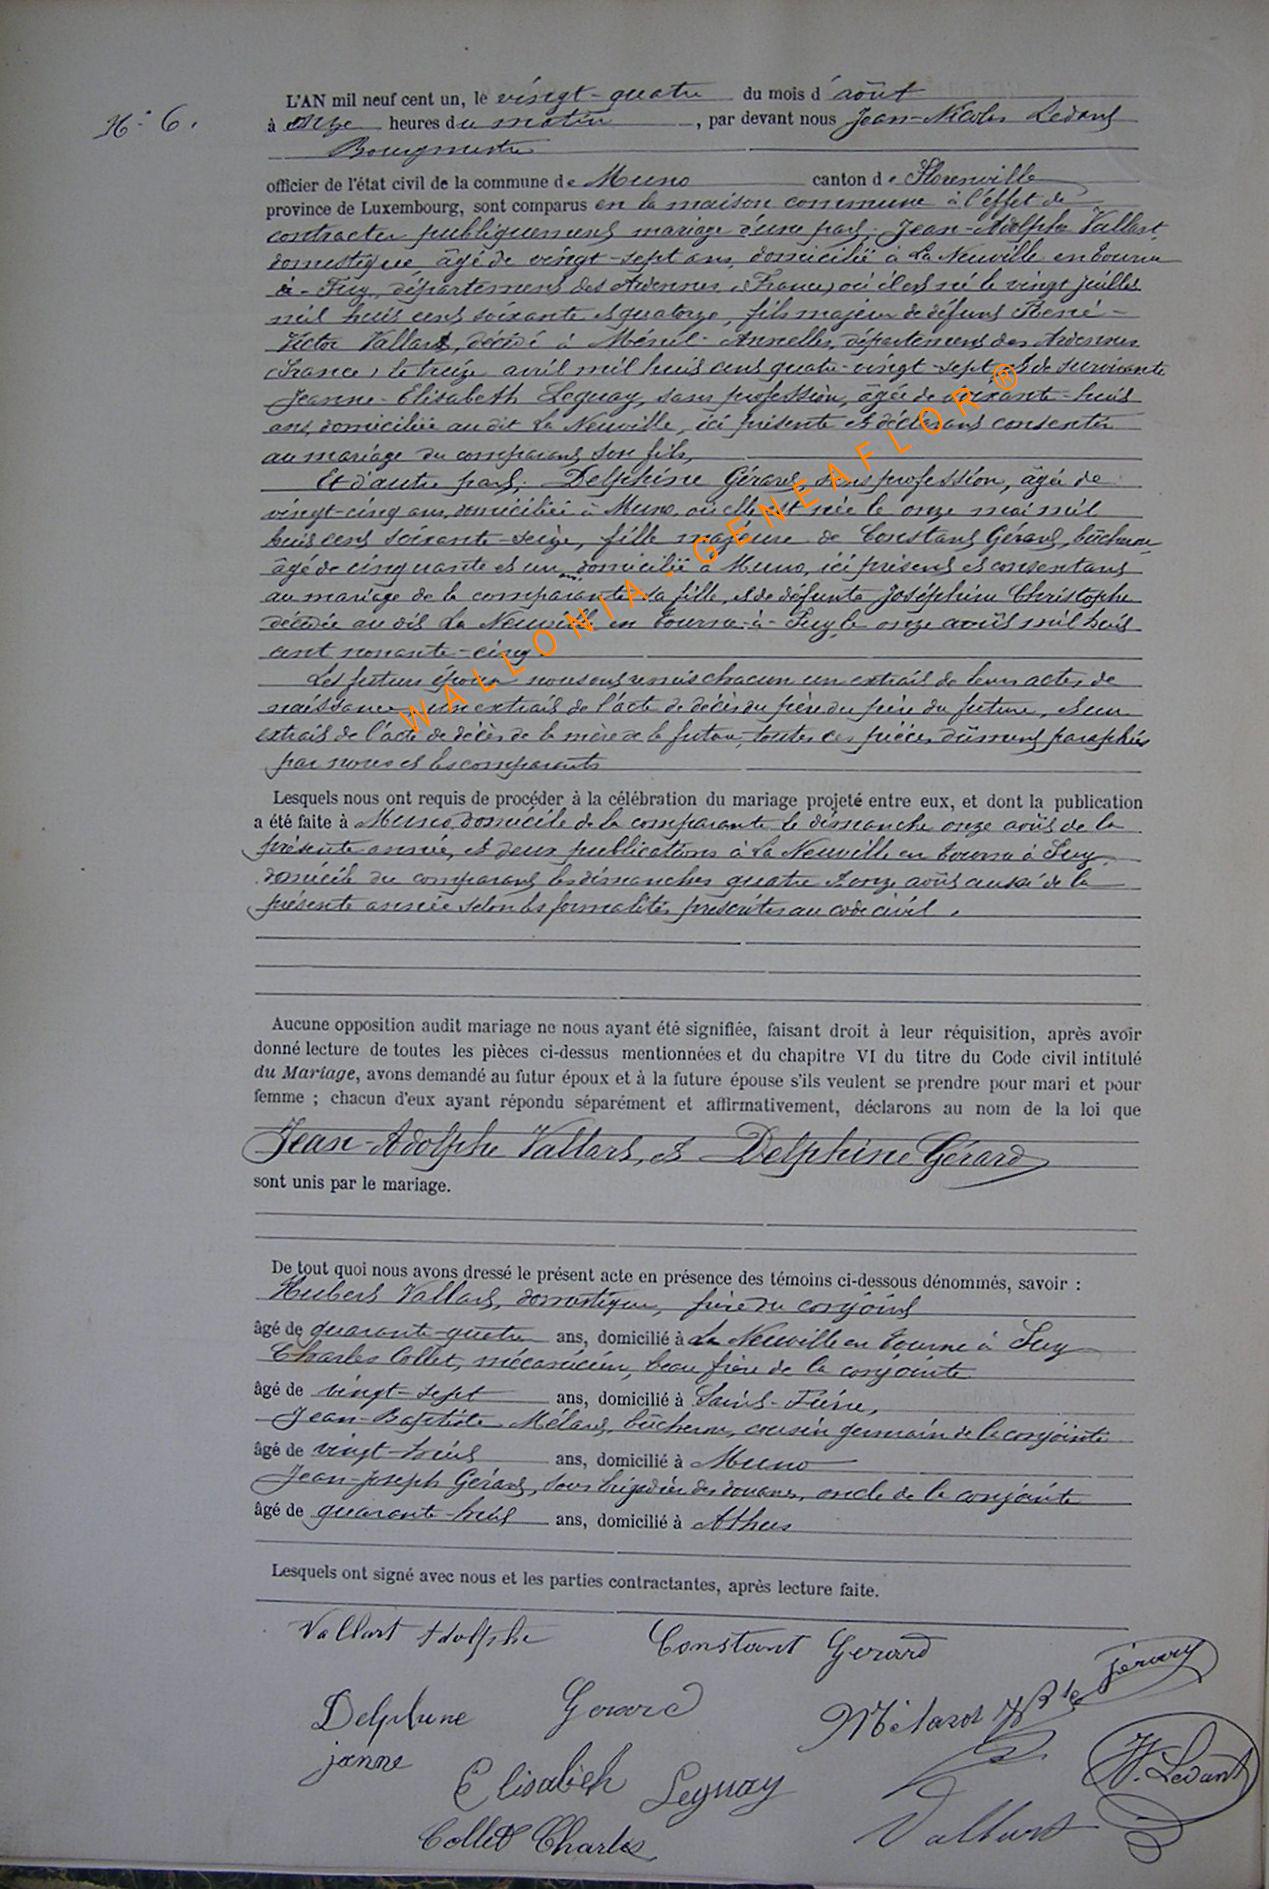 N° 6.
L'AN mil neuf cent un, le vingt-quatre du mois d'août
à onze heures du matin, par devant nous Jean-Nicolas Ledant
Bourgmestre
officier de l'état civil de la commune de Muno canton de Florenville
province de Luxembourg, sont comparus en la maison commune à l'effet de
contracter publiquement mariage d'une part; Jean-Adolphe Vallart,
domestique, âgé de vingt-sept ans, domicilié à La Neuville en tourne
à-Fuy, département des Ardennes (France) où il est né le vingt juillet
mil huit cent soixante et quatorze, fils majeur de défunt René-
Victor Vallart, décédé à Mesnil-Annelles, département des Ardennes
(France) le treize avril mil huit cent quatre-vingt-sept, et de survivante
Jeanne-Elisabeth Leguay, sans profession, âgée de soixante-huit
ans, domiciliée au dit La Neuville, ici présente et déclarant consentir
au mariage du comparant son fils,
Et d'autre part; Delphine Gérard, sans profession, âgée de
vingt-cinq ans, domiciliée à Muno, où elle est née le onze mai mil
huit cent soixante-seize, fille majeure de Constant Gérard, bûcheron
âgé de cinquante et un ans, domicilié à Muno, ici présent et consentant
au mariage de la comparante sa fille, et de défunte Joséphine Christophe
décédée au dit La Neuville en tourne-à-Fuy, le onze août mil huit
cent nonante-cinq.
Les futurs époux nous ont remis chacun un extrait de leurs actes de
naissance, un extrait de l'acte de décès du père du père du future, et un
extrait de l'acte de décès de la mère de la future, toutes ces pièces dûment paraphées
par nous et les comparants
Lesquels nous ont requis de procéder à la célébration du mariage projeté entre eux, et dont la publication
a été faite à Muno, domicile de la comparante le dimanche onze août de la
présente année, et deux publications à La Neuville en tourne à Fuy
domicile du comparant les dimanches quatre et onze août aussi de la
présente année selon les formalités prescrites au code civil.
Aucune opposition audit mariage ne nous ayant été signifiée, faisant droit à leur réquisition, après avoir
donné lecture de toutes les pièces ci-dessus mentionnées et du chapitre VI du titre du Code civil intitulé
du Mariage, avons demandé au futur époux et à la future épouse s'ils veulent se prendre pour mari et pour
femme ; chacun d'eux ayant répondu séparément et affirmativement, déclarons au nom de la loi que
Jean-Adolphe Vallart, et Delphine Gérard
sont unis par le mariage.
De tout quoi nous avons dressé le présent acte en présence des témoins ci-dessous dénommés, savoir :
Hubert Vallart, domestique, frère du conjoint
âgé de quarante-quatre ans, domicilié à La Neuville en tourne à Fuy
Charles Collet, mécanicien, beau frère de la conjointe
âgé de vingt-sept ans, domicilié à
Jean-Baptiste Mélard, bûcheron, cousin germain de la conjointe
âgé de vingt-huit ans, domicilié à Muno
Jean-Joseph Gérard, sous brigadier des douanes, oncle de la conjointe
âgé de quarante-huit ans, domicilié à Athus
Lesquels ont signé avec nous et les parties contractantes, après lecture faite.
Vallart Adolphe Constant Gerard
Delphine Gerard
janne Elisabeth Leguay
N. Ledant
Collet Charles Vallart
WALLONIA-GENEAFLOR®